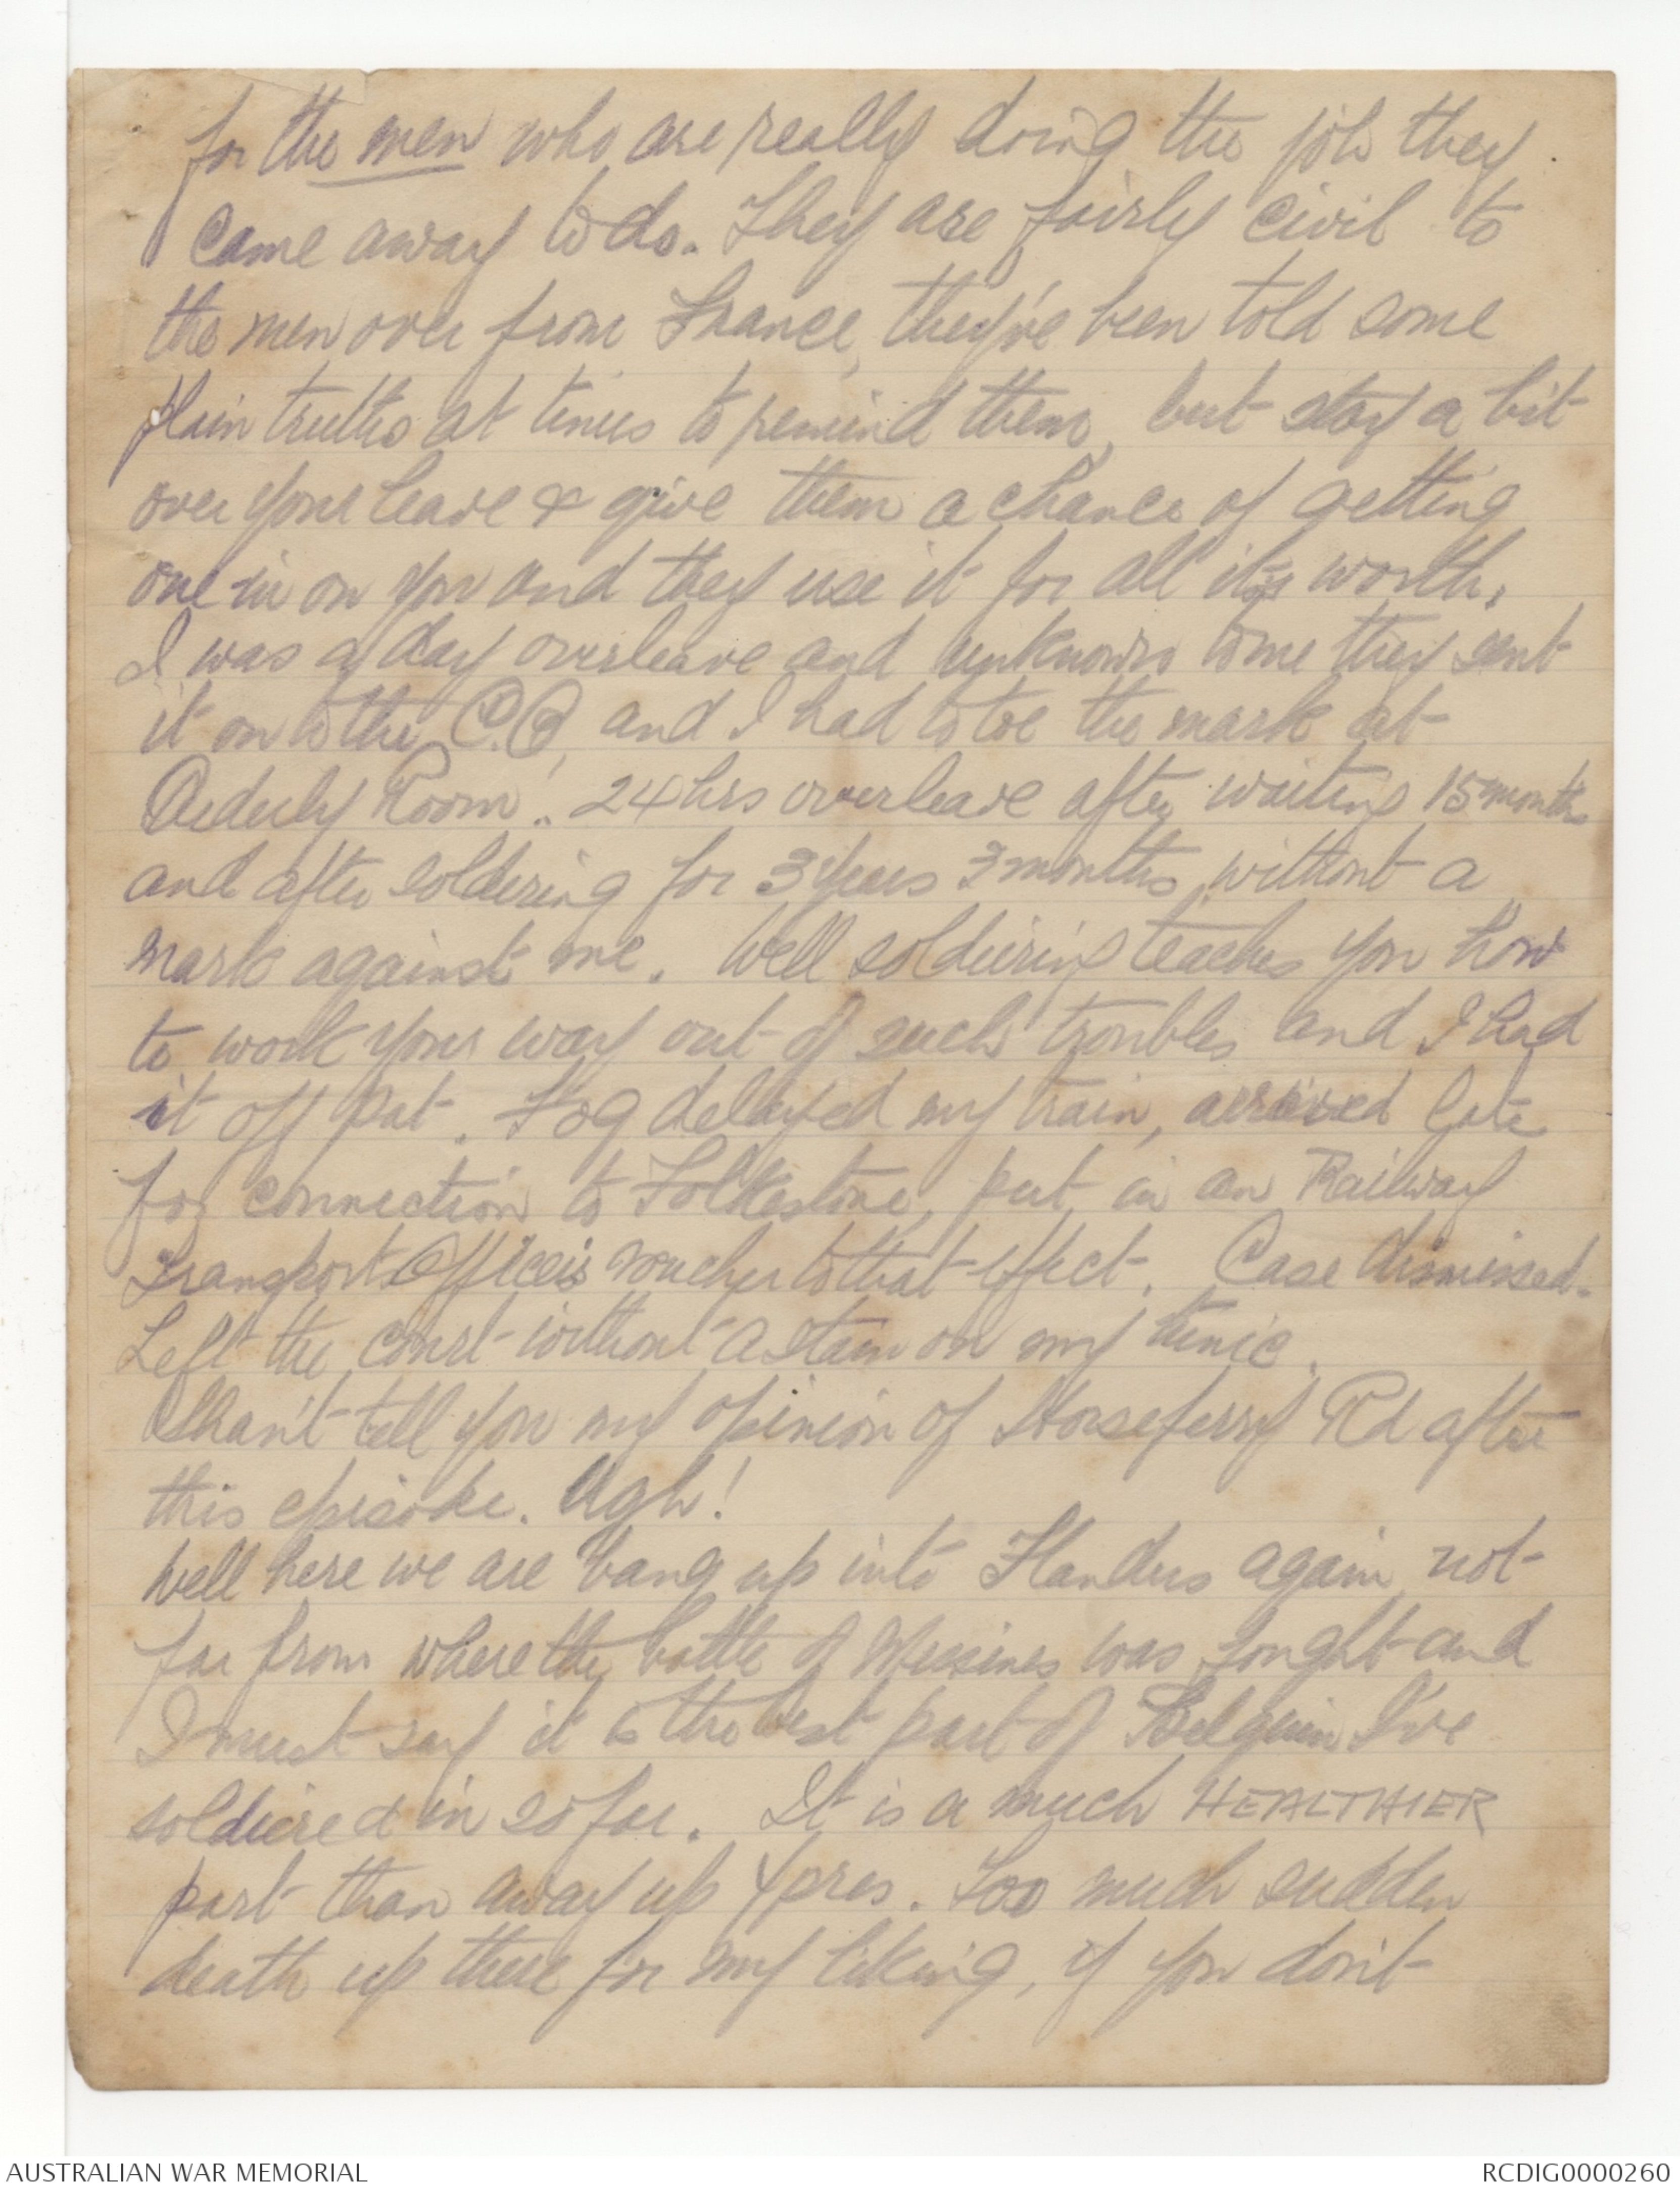 for the men who are really doing the job they
came away to do. They are fairly civil to
the men over from France, they've been told some
plain truths at times to remind them, but stay a bit
over your leave & give them a chance of getting
one in on you and they use it for all its worth.
I was a day overleave and unknown to me they sent
it on to the C.O, and I had to toe the mark at
Orderly Room. 24 hrs overleave after waiting 15 months
and after soldering for 3 years 3 months, without a
mark against me. Well soldiering teaches you how
to work your way out of such troubles and I had
it off pat. Fog delayed my train, arrived late
for connection to Folkestone, put in an Railway
Transports Officers voucher to that effect. Case dismissed.
Left the court without a stain on my tunic.
Shan't tell you my opinion of Horseferry Rd after
this episode. Ugh!
Well here we are bang up into Flanders again, not
far from where the battle of Messines was fought and
I must say it is the best part of Belgium I've
soldiered in so far. It is a much HEALTHIER
part than away up Ypres. Too much sudden
death up there for my liking, if you don't
AUSTRALIAN WAR MEMORIAL
RCDIG0000260